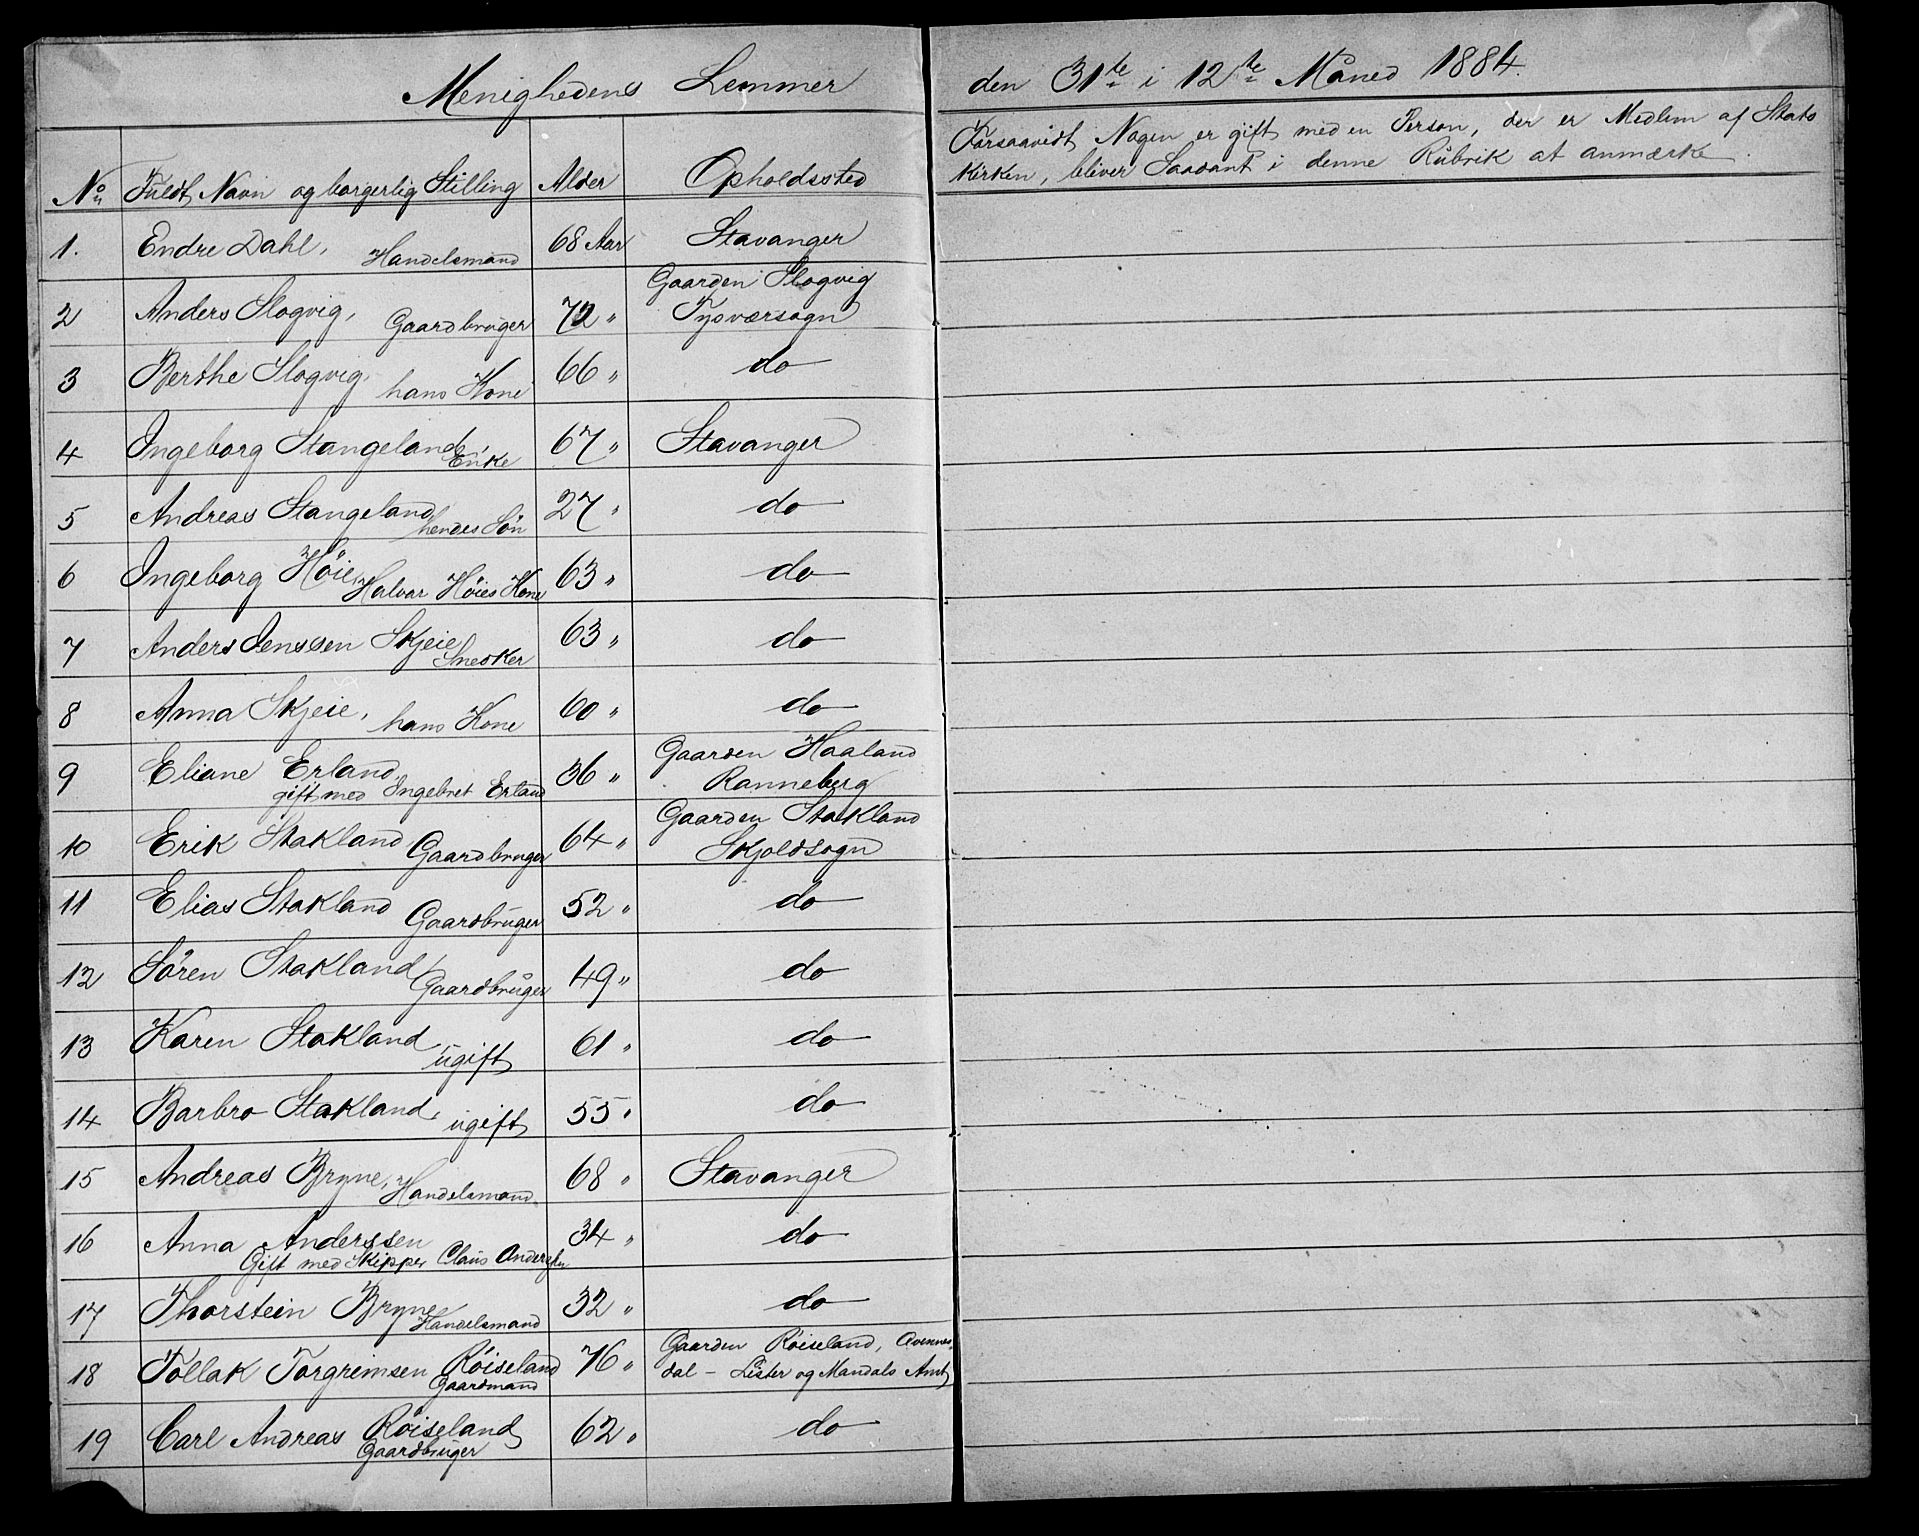 Menighedens Lemmer den 31te i 12te Måned 1884.
Forsaavidt Nogen er gift med en Person, der er Medlem af Stats
kirken, bliver Saadant i denne Rubrik at anmærke.
No Fuldt Navn og borgerlig Stilling Alder Opholdssted
1. Endre Dahl, Handelsmand 68 Aar Stavanger
2 Anders Slogvig, Gaardbruger 72 " Gaarden Slogvig
Tysværsogn
3 Berthe Slogvig, hans Kone 66 " do
4 Ingeborg Stangeland, Enke 67 " Stavanger
5 Andreas Stangeland, hendes Sön 27 " do
6 Ingeborg Höie, Halvar Höies Kone 63 " do
7 Anders Jenssen Skjeie, Snedker 63 " do
8 Anna Skjeie, hans Kone 60 " do
9 Eliane Erland, 36 " Gaarden Haaland
gift med Ingebret Erland Ranneberg
10 Erik Stakland Gaardbruger 64 " Gaarden Stakland
Skjoldsogn
11 Elias Stakland Gaardbruger 52 " do
12 Sören Stakland, Gaardbruger 49 " do
13 Karen Stakland, ugift 61 " do
14 Barbro Stakland, ugift 55 " do
15 Andreas Bryne, Handelsmand 68 " Stavanger
16 Anna Anderssen 34 " do
Gift med Skipper Claus Anderssen
17 Thorstein Bryne, Handelsmand 32 " do
18 Tollak Torgrimsen Röiseland 76 " Gaarden Röiseland, Qvennes-
Gaardmand dal - Lister og Mandals Amt
19 Carl Andreas Röiseland 62 " do
Gaardbruger